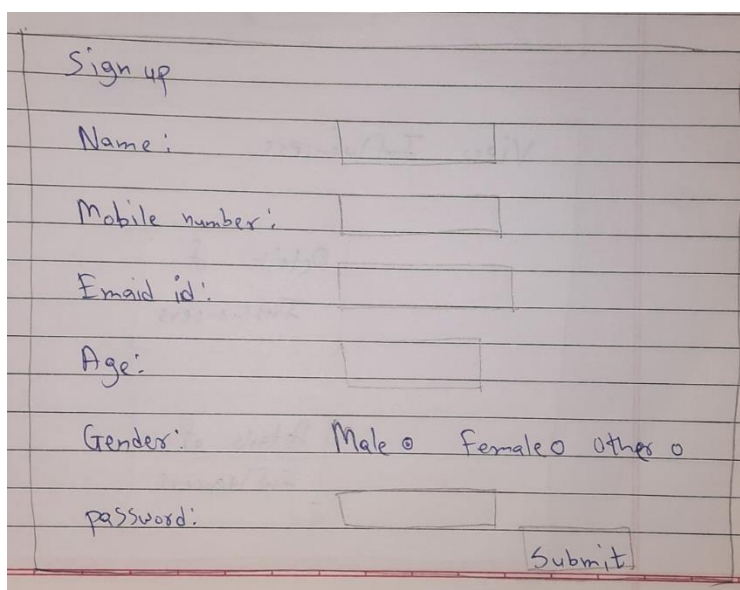 Sign up
Name:
Mobile number:
Emaid id:
Age:
Gender: Male Female Other
password:
Submit